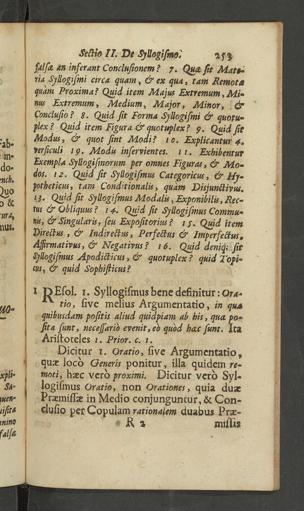 Sectio II. De Syllogismo. 253
falsæ an inferant Conclusionem? 7. Quæ sit Mate-
ria Syllogismi circa quam, & ex qua, tam Remota
quàm Proxima? Quid item Majus Extremum, Mi-
nus Extremum, Medium, Major, Minor, &
Conclusio? 8. Quid sit Forma Syllogismi & quotu-
plex? Quid item Figura & quotuplex? 9. Quid sit
Modus, & quot sint Modi? 10. Explicantur 4.
versiculi 19. Modis inservientes. 11. Exhibentur
Exempla Syllogismorum per omnes Figuras, & Mo-
dos. 12. Quid sit Syllogismus Categoricus, & Hy-
potheticus, tam Conditionalis, quàm Disjunctivus.
13. Quid sit Syllogismus Modalis, Exponibilis, Rec-
tus & Obliquus? 14. Quid sit Syllogismus Commu-
nis, & Singularis, seu Expositorius? 15. Quid item
Directus, & Indirectus, Perfectus & Imperfectus,
Affirmativus, & Negativus? 16. Quid deniq; sit
Syllogismus Apodicticus, & quotuplex? quid Topi-
cus, & quid Sophisticus?
1 REsol. 1. Syllogismus bene definitur: Ora-
tio, sive melius Argumentatio, in qua
quibusdam positis aliud quidpiam ab his, quæ po-
sita sunt, necessariò evenit, eò quòd hæc sunt. Ita
Aristoteles 1. Prior. c. 1.
Dicitur 1. Oratio, sive Argumentatio,
quæ locò Generis ponitur, illa quidem re-
moti, hæc verò proximi. Dicitur verò Syl-
logismus Oratio, non Orationes, quia duæ
Præmissæ in Medio conjunguntur, & Con-
clusio per Copulam rationalem duabus Præ-
R 2 missis